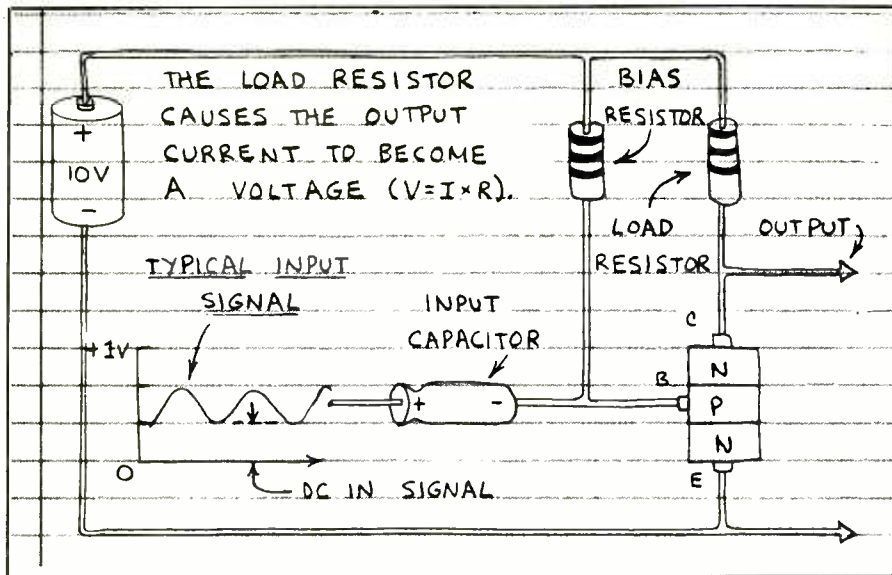 THE LOAD RESISTOR
CAUSES THE OUTPUT
CURRENT TO BECOME
A VOLTAGE (V=I×R).
BIAS
RESISTOR
+
10V
-
LOAD
RESISTOR
OUTPUT
TYPICAL INPUT
SIGNAL
INPUT
CAPACITOR
C
+1V
N
B
+ -
P
N
O
E
DC IN SIGNAL